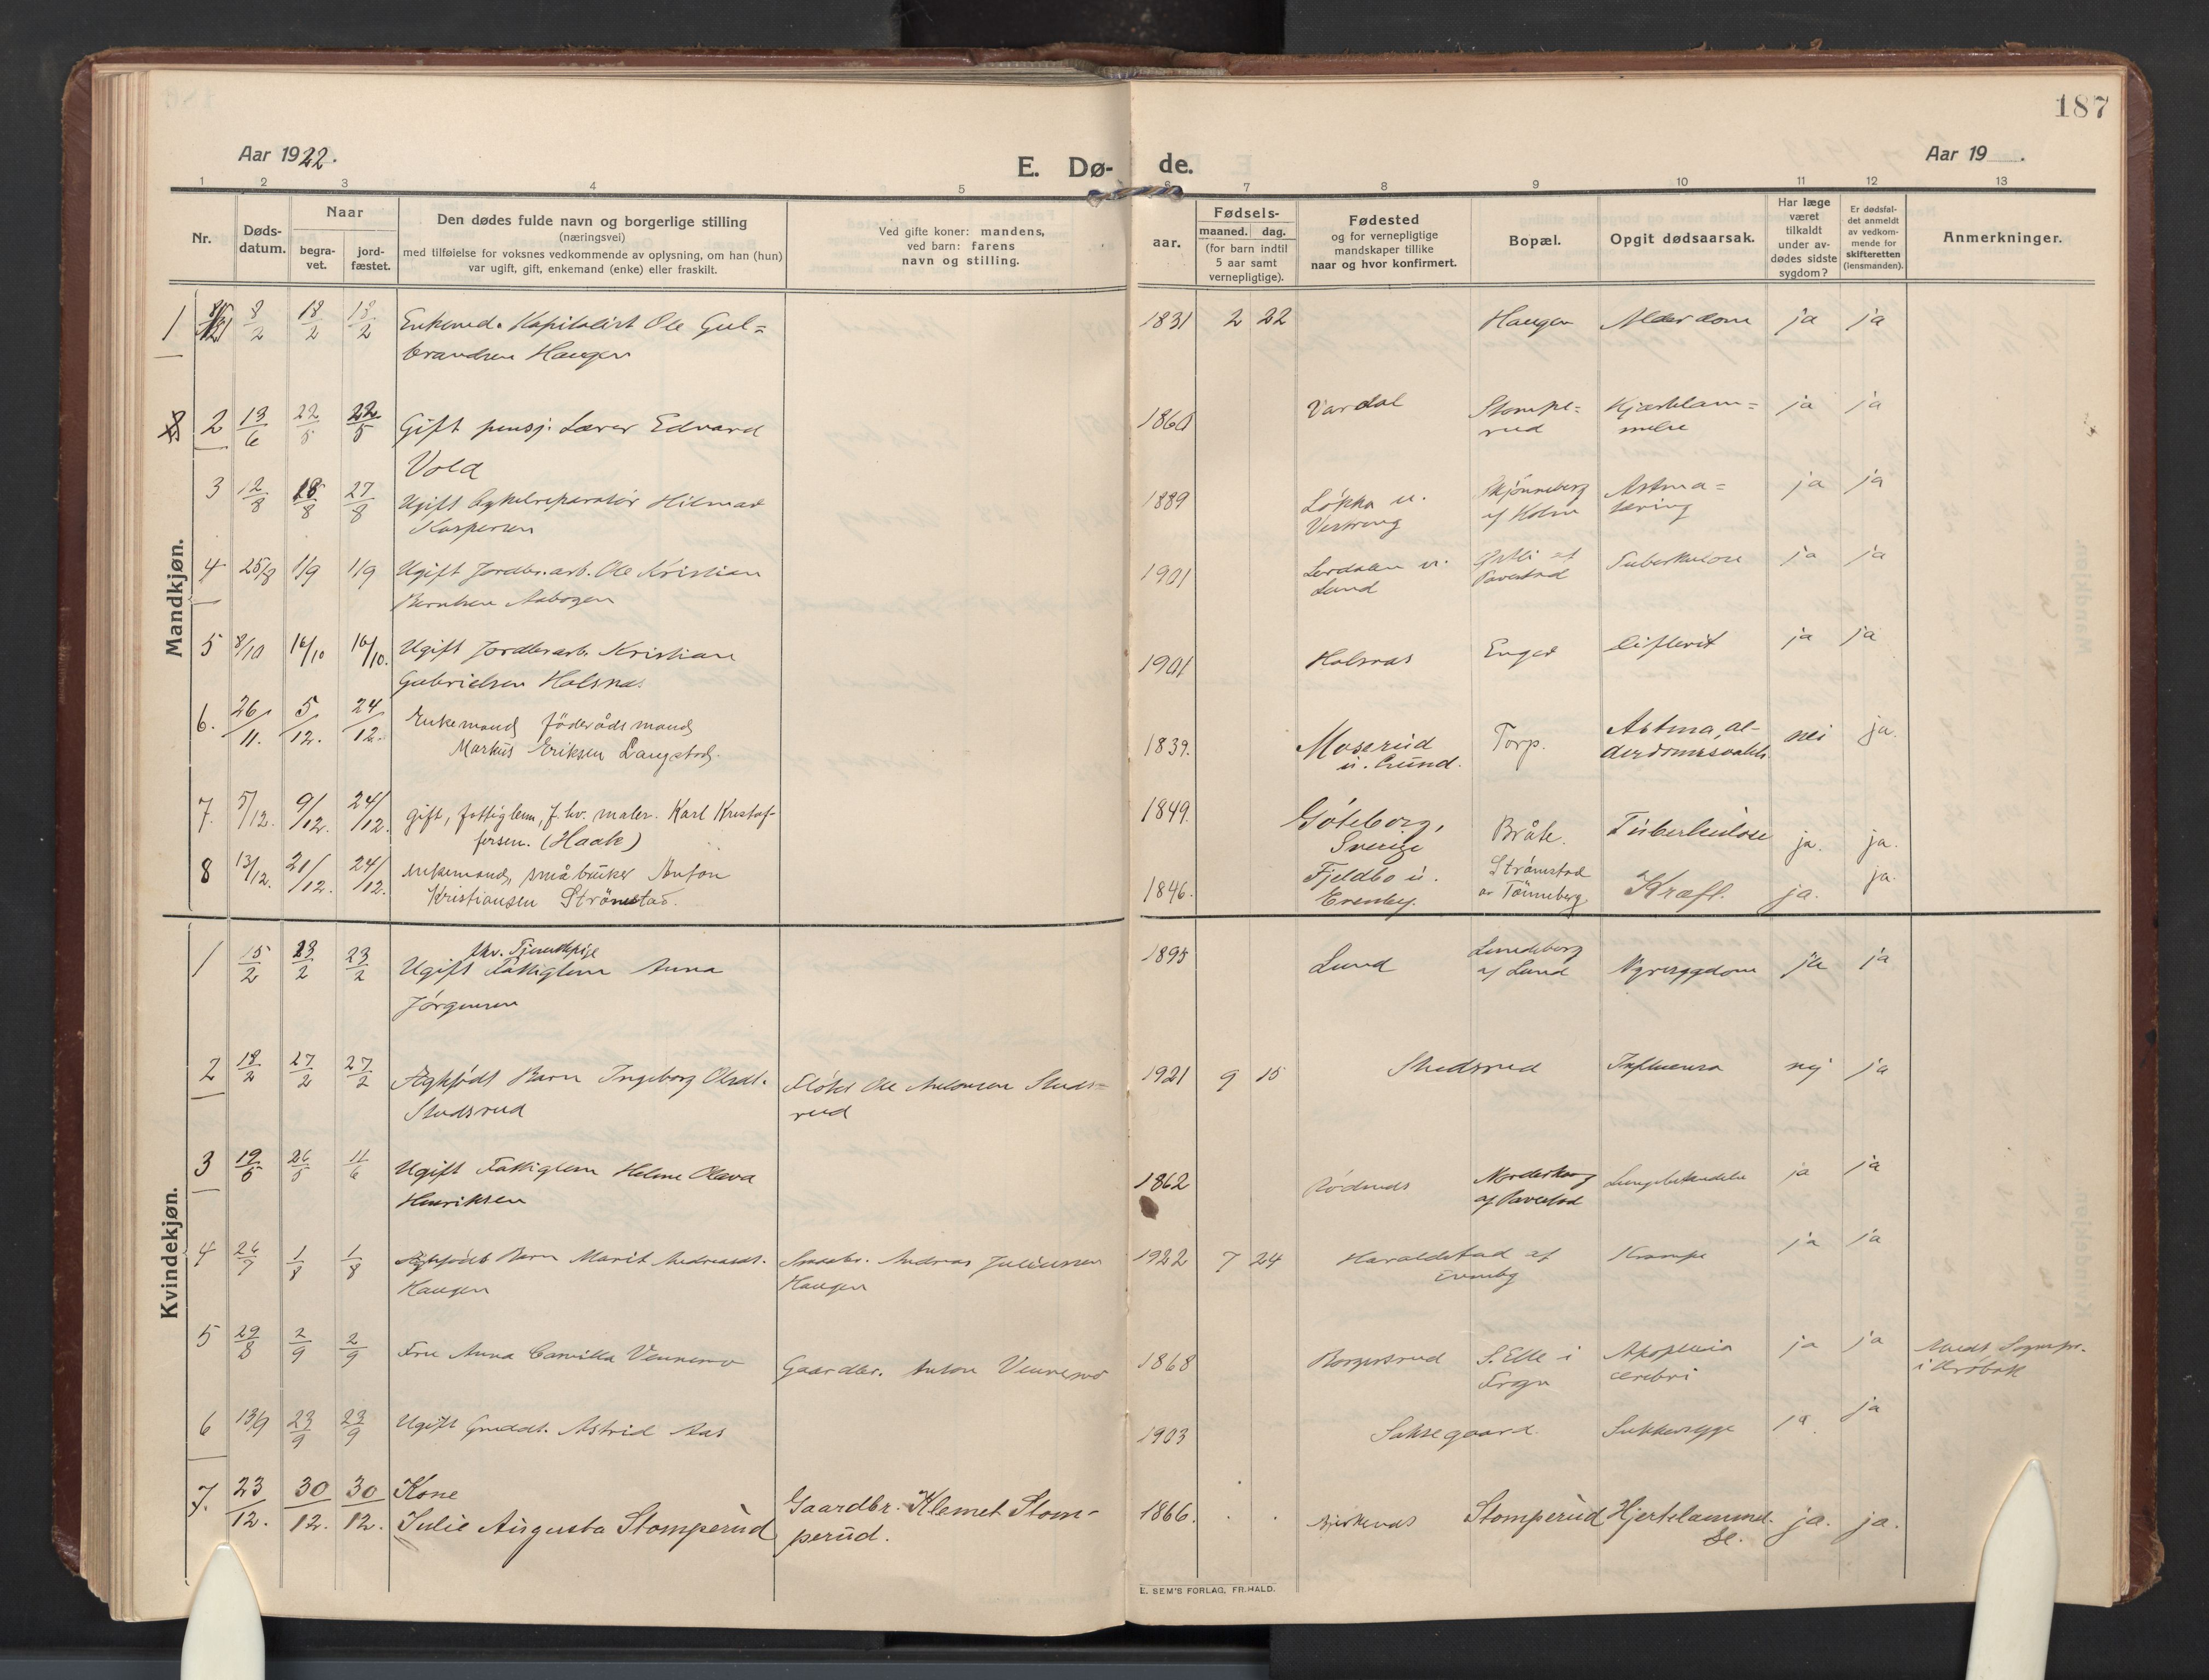 187
Aar 1922.
E. Dø- de.
Aar 19
1 2 3 4 5 6 7 8 9 10 11 12 13
Nr.
Døds-
datum.
Naar
begra-
vet.
jord-
fæstet.
Den dødes fulde navn og borgerlige stilling
(næringsvei)
med tilføielse for voksnes vedkommende av oplysning, om han (hun)
var ugift, gift, enkemand (enke) eller fraskilt.
Ved gifte koner: mandens,
ved barn: farens
navn og stilling.
aar.
Fødsels-
maaned. dag.
(for barn indtil
5 aar samt
vernepligtige).
Fødested
og for vernepligtige
mandskaper tillike
naar og hvor konfirmert.
Bopæl.
Opgit dødsaarsak.
Har læge
været
tilkaldt
under av-
dødes sidste
sygdom?
Er dødsfal-
det anmeldt
av vedkom-
mende for
skifteretten
(lensmanden).
Anmerkninger.
Mandkjøn.
1 8/2 18/2 18/2 Enkemd. Kapitalist Ole Gul= 1831 2 22 Haugen Alderdom ja ja
brandsen Haugen
2 13/6 22/5 22/5 Gift pensj. Lærer Edvard 1860 Vardal Stompe= Hjærtelam= ja ja
Vold rud melse
3 12/8 18/8 27/8 Ugift Cykelreparatør Hilmar 1889 Løkka u. Skjønneberg Astma= ja ja
Kaspersen Vestreng af Holm tæring
4 25/8 1/9 1/9 Ugift Jordbr.arb. Ole Kristian 1901 Lerdalen u. af Tuberkulose ja ja
Berntsen Aabogen Lund Tavestad
5 8/10 16/10 16/10. Ugift Jordbr.arb. Kristian 1901 Halsnas Enger Difterit ja ja
Gabrielsen Halsnas
6. 26/11. 5/12. 24/12. Enkemand föderådsmand 1839. Moserud Torp. Astma, al- nei ja.
Markus Eriksen Langstad. u. Grund. derdomssvakh.
7. 5/12. 9/12. 24/12. gift, fattiglem, f. hv. maler. Karl Kristof- 1849. Göteborg, Bråte. Tuberkulose ja. ja.
fersen. (Haak) Sverige
8 13/12. 21/12. 24/12. enkemand, småbruker Anton 1846. Fjeldbo u. Strømstad Kræft. ja. ja.
Kristiansen Strömstad. Evenby. av Tönneberg
Kvindekjøn.
fhv. Tjenestepige
1 15/2 23/2 23/2 Ugift Fattiglem Anna 1895 Lund Lundeborg Nyresygdom ja ja
Jörgensen af Lund
2 18/2 27/2 27/2 Ægtefødt Barn Ingeborg Olsdt. Fløter Ole Antonsen Studs= 1921 9 15 Studsrud Influensa nej ja
Studsrud rud
3 19/5 26/5 11/6 Ugift Fattiglem Helene Olava 1862 Rødenes Norderhaug Lungebetændelse ja ja
Henriksen af Tavestad
4 26/7 1/8 1/8 Ægtefødt Barn Marit Andreasdt. Smaabr. Andreas Juliussen 1922 7 24 Haraldstad af Krampe ja ja
Haugen Haugen Evenby
5 29/8 2/9 2/9 Fru Anna Camilla Vennemo Gaardbr. Anton Vennemo 1868 Borgersrud S. Elle i Apoplexia ja ja Medt. Sognepr.
Frogn cerebri i Drøbak
6 13/9 23/9 23/9 Ugift Grddt. Astrid Aas 1903 Saksegaard Sukkersyge ja ja
7. 23/12. 30/12. 30/12. Kone Gaardbr. Klemet Stom- 1866. Stomperud Hjertelammel- ja. ja.
Julie Augusta Stomperud perud. se.
E. SEM'S FORLAG, FR.HALD.